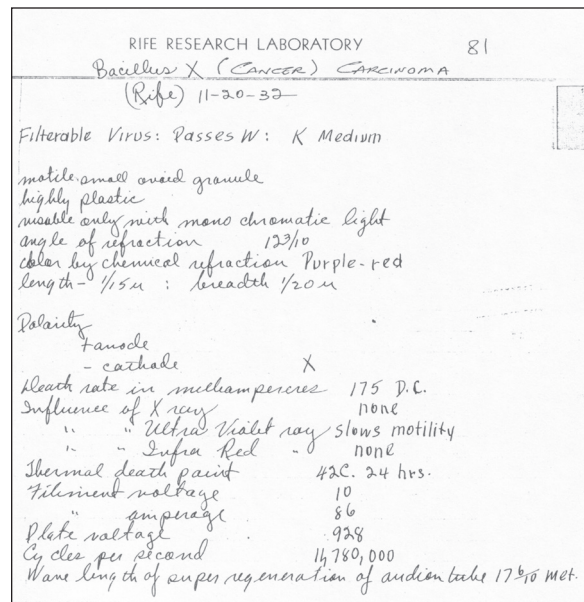 RIFE RESEARCH LABORATORY 81
Bacillus X (CANCER) CARCINOMA
(Rife) 11-20-32
Filterable Virus: Passes W: K Medium
motile small ovoid granule
highly plastic
visable only with mono chromatic light
angle of refraction 12 3/10
color by chemical refraction Purple-red
length - 1/15 u : breadth 1/20 u
Polarity
+ anode
- cathode X
Death rate in milliamperes 175 D.C.
Influence of X ray none
" " Ultra Violet ray slows motility
" " Infra Red " none
Thermal death point 42C. 24 hrs.
Filiment voltage 10
" amperage 86
Plate voltage 928
Cycles per second 11,780,000
Wave length of super regeneration of audion tube 17 6/10 met.